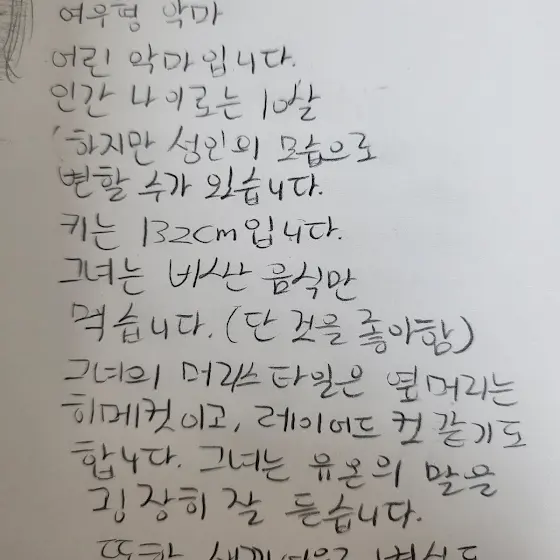 여우형 악마
어린 악마입니다.
인간 나이로는 10살
하지만 성인의 모습으로
변할 수가 있습니다.
키는 132cm입니다.
그녀는 비싼 음식만
먹습니다. (단 것을 좋아함)
그녀의 머리스타일은 옆머리는
히메컷이고, 레이어드 컷 같기도
합니다. 그녀는 유온의 말을
굉장히 잘 듣습니다.
또한